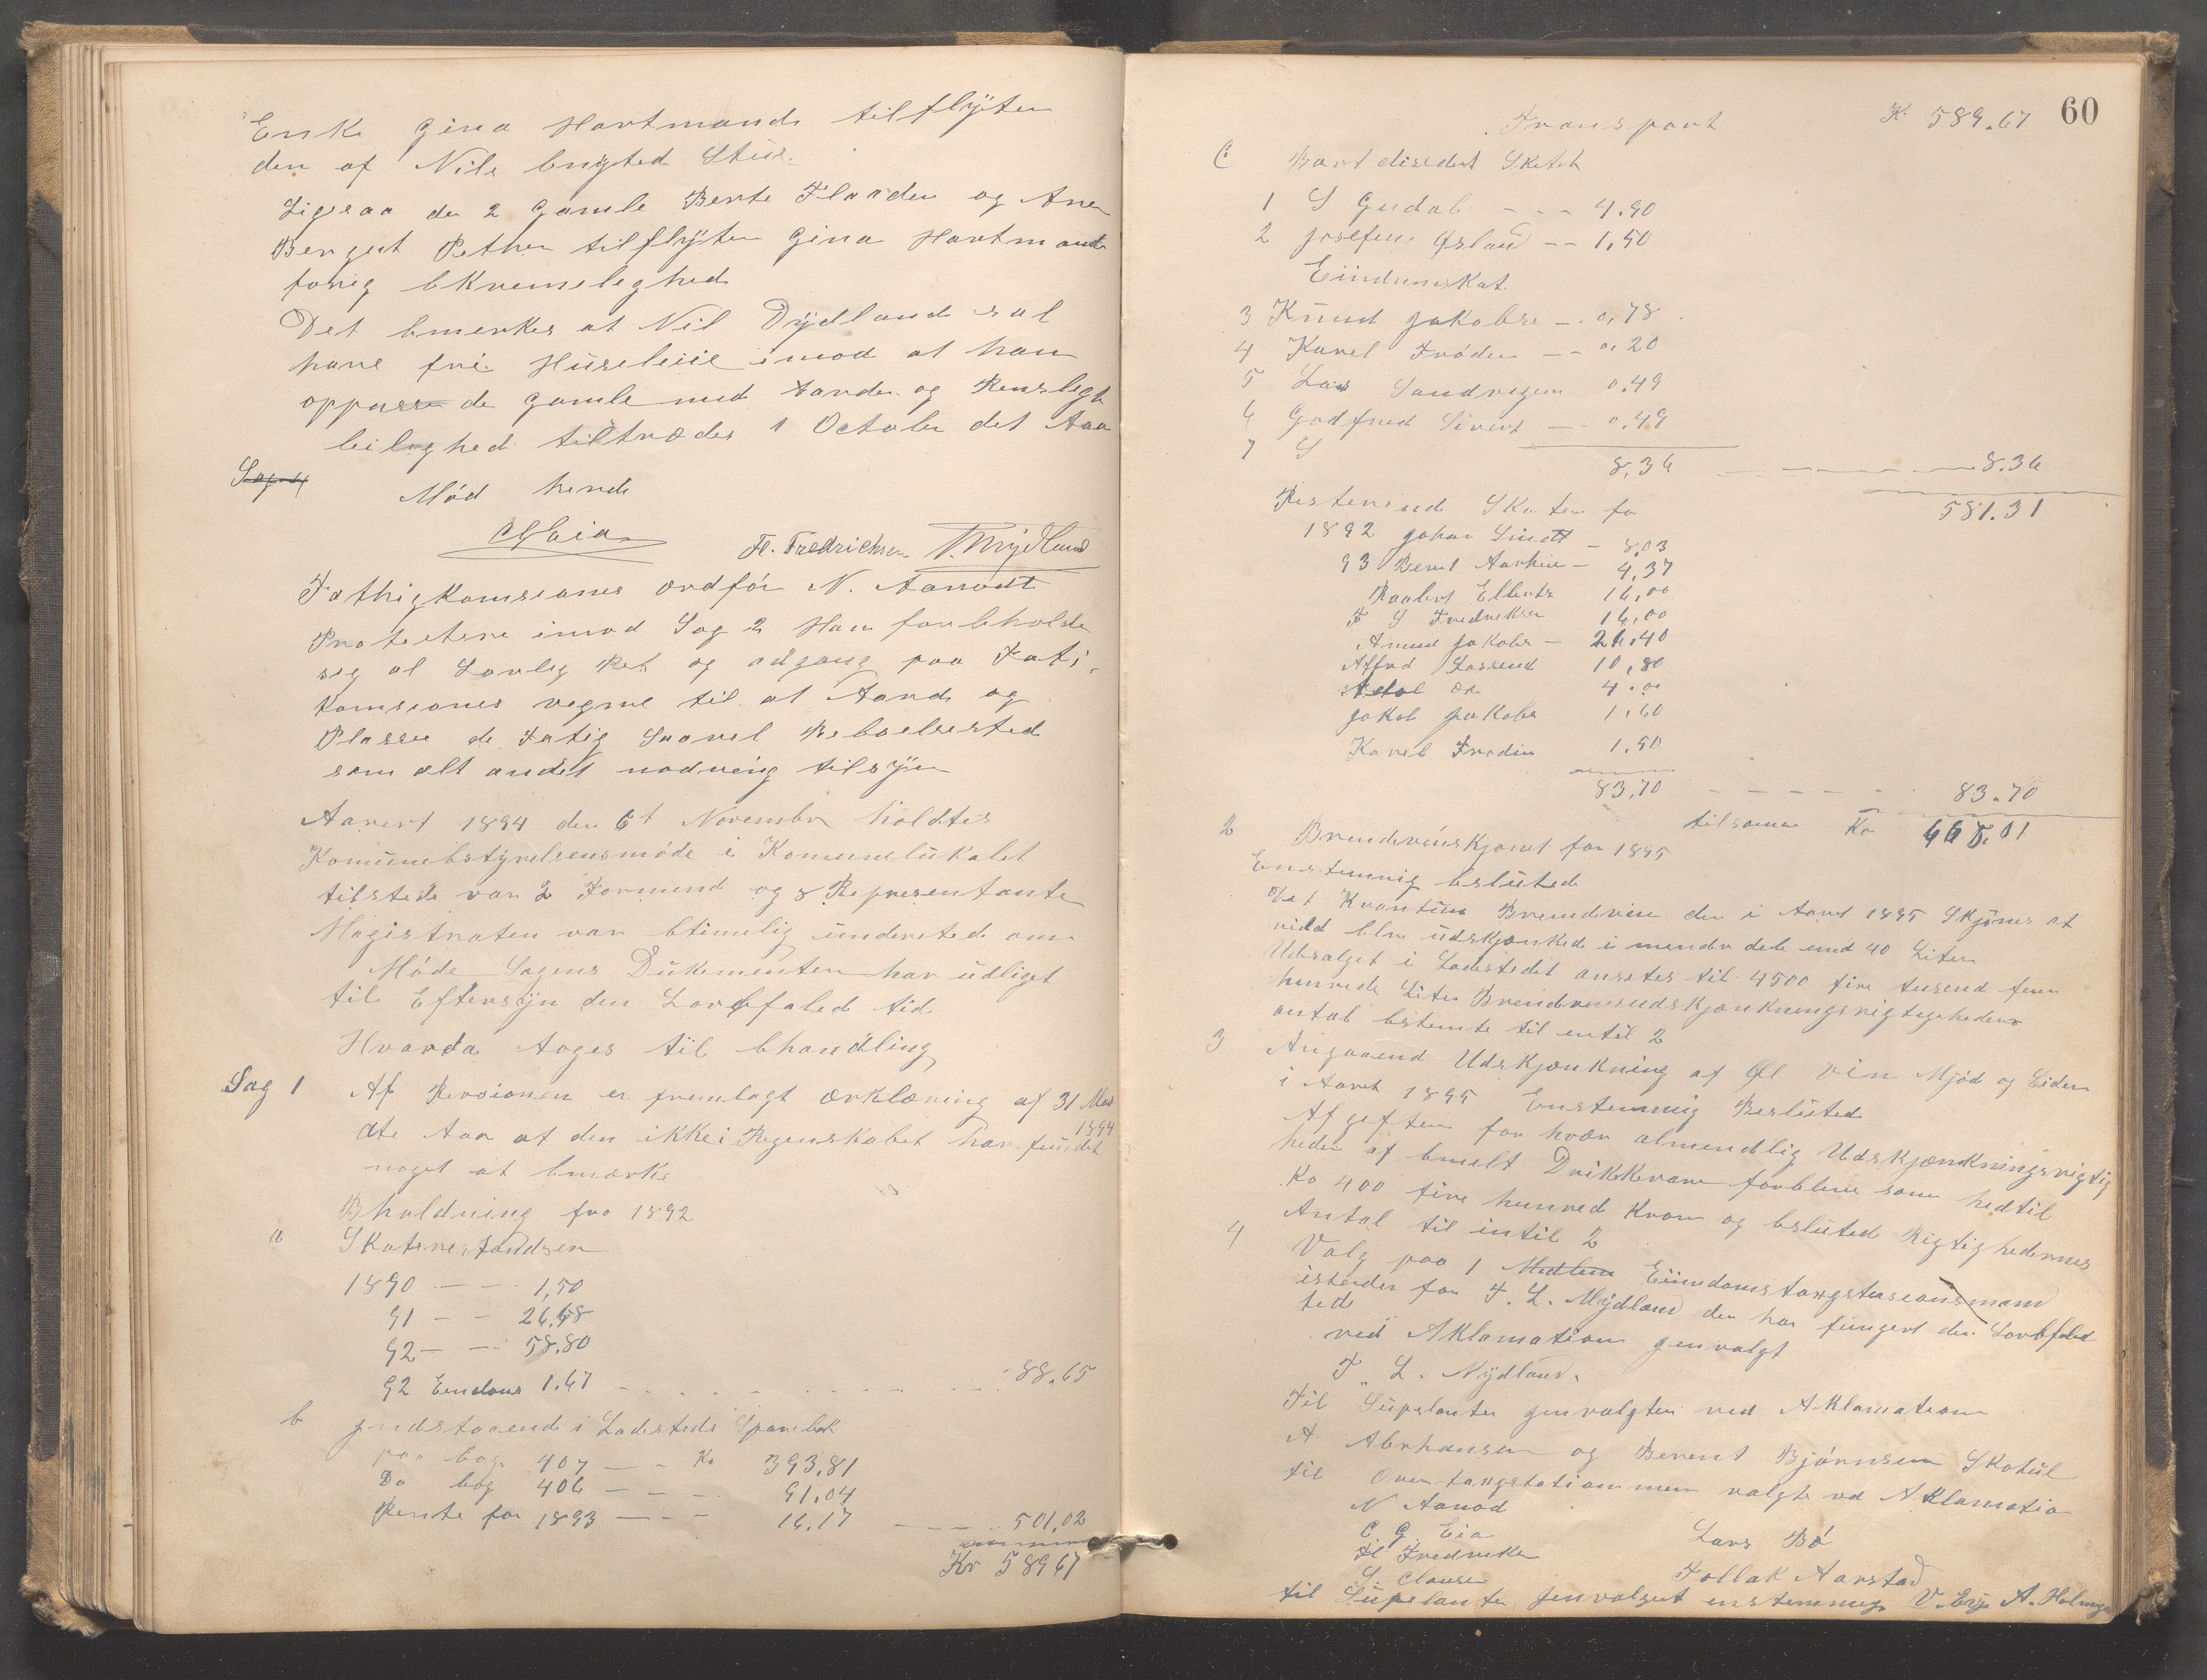 Enke Gina Hartmands tilflÿter
den af Nils bnÿted Stue.
Ligesaa de 2 gamle Berte Flaaden og Ane
Berget Pethr tilflÿter Gina Hartmands
forig bkvemelighed
Det bmerkes at Nil Dÿdland sal
have fri Hüseleiie imod at han
oppasse de gamle med Vande og Renslighe
leilaghed tiltrædes 1 October det Aar
Sag 4
Mód hevde
CGEia Fl. Fredrichsen T. Mÿdland
Fathigkomsiones ordfór N. Aanodt
Protestere imod Sag 2 Han forbholde
sig al Lovlig Ret og adgang paa Fati-
komsiones vegne til at Aand og
Plasser de Fatig Saavel Beboelsested
som alt andet nodvenig tilsÿn
Aaret 1894 den 6t November holdtes
Komünebstÿrelsensmóde i Komunelükalet
tilstede var 2 Formend og 8 Representante
Magistraten var btimelig ünderetted om
Móde Sagens Dükementer har üdliget
til Eftersÿn den Lovbfaled tid
Hvorda toges til bhandling
Sag 1 Af Revsionen er fremlagt ærklæring af 31 Mad
1894
dte Aar at den ikke i Regenskabet har fündet
noget at bmærke
Bholdning fra 1892
a Skaterestandsen
1890 — — 1,50
91 — — 26.68
92 — — 58.80
92 Eendoms 1.67 — — — 88.65
b Jndstaaend i Ladesteds Sparebk
paa bog 407 — — Kr 393.81
Do bog 406 — — — 91.04
Rente for 1893 — — — 16.17 — — — 501,02
Kr 589 67
60
Transport Kr 589.67
C Bort disedert Skatt
1 S Gudal - - - 4.90
2 Josefine Ósland -- 1,50
Eiindumskat
3 Knüd Jakobse — 0,78
4 Karel Fróden — — 0.20
5 Lars Sandvigen 0.49
6 Godfred Sivert — 0.49
7 S
8,36 — — — 8.36
Resterend Skater for 581.31
1892 Johan Smett — 8,03
93 Bernt Aarhus — 4,37
Raabert Ellerts 16,00
F S Fredrikse 16,00
Amund Jakobs — 21,40
Alfred Lassend 10,80
Adol do 4.00
Jakob Jakobs 1,60
Karel Frodin 1.50
83,70 — — — — — 83.70
tilsamme Kr 665,01
2 Brendevinskjonet for 1895
Enstemmig bslüted
Det Kvantüm Brendevin der i Aaret 1895 Skjónes at
vild blve üdskjenked i mendr dele end 40 Liter
Udsalget i Ladestedet ansettes til 4500 fire tusend fem
hunrede Liter Brendvinsudskjenkningsrigtighedens
antal bstemte til entil 2
3 Angaaend Udskjænkning af Øl Vin Mjód og Eider
i Aaret 1895 Enstemmig Beslüted
Afgeften for hvær almendlig Udskjænkningsrigtig
heder af bmelt Drikkevare forblive som hedtil
Kr 400 fire hunred Kron og bslüted Rigtighedernes
Antal til intil 2
4 Valg paa 1 Medlem Eiindomstaxgstasionsmand
isteder for T. L. Mÿdland der har fungert den Lovbfaled
tid
ved Aklamation genvalgt
T. L. Mÿdland.
til Süpelanter genvalgten ved Aklamation
A Abrhansen og Berent Bjórnsen Skotül
til Overtaxgstation men valgte ved Aklamatio
N Aanod
C. G. Eia Lars Bó
Fl Fredrikse
S. Clausen Tollak Aarstad
til Süpelanter Jenvalget enstemmig V. Eje A. Holmge